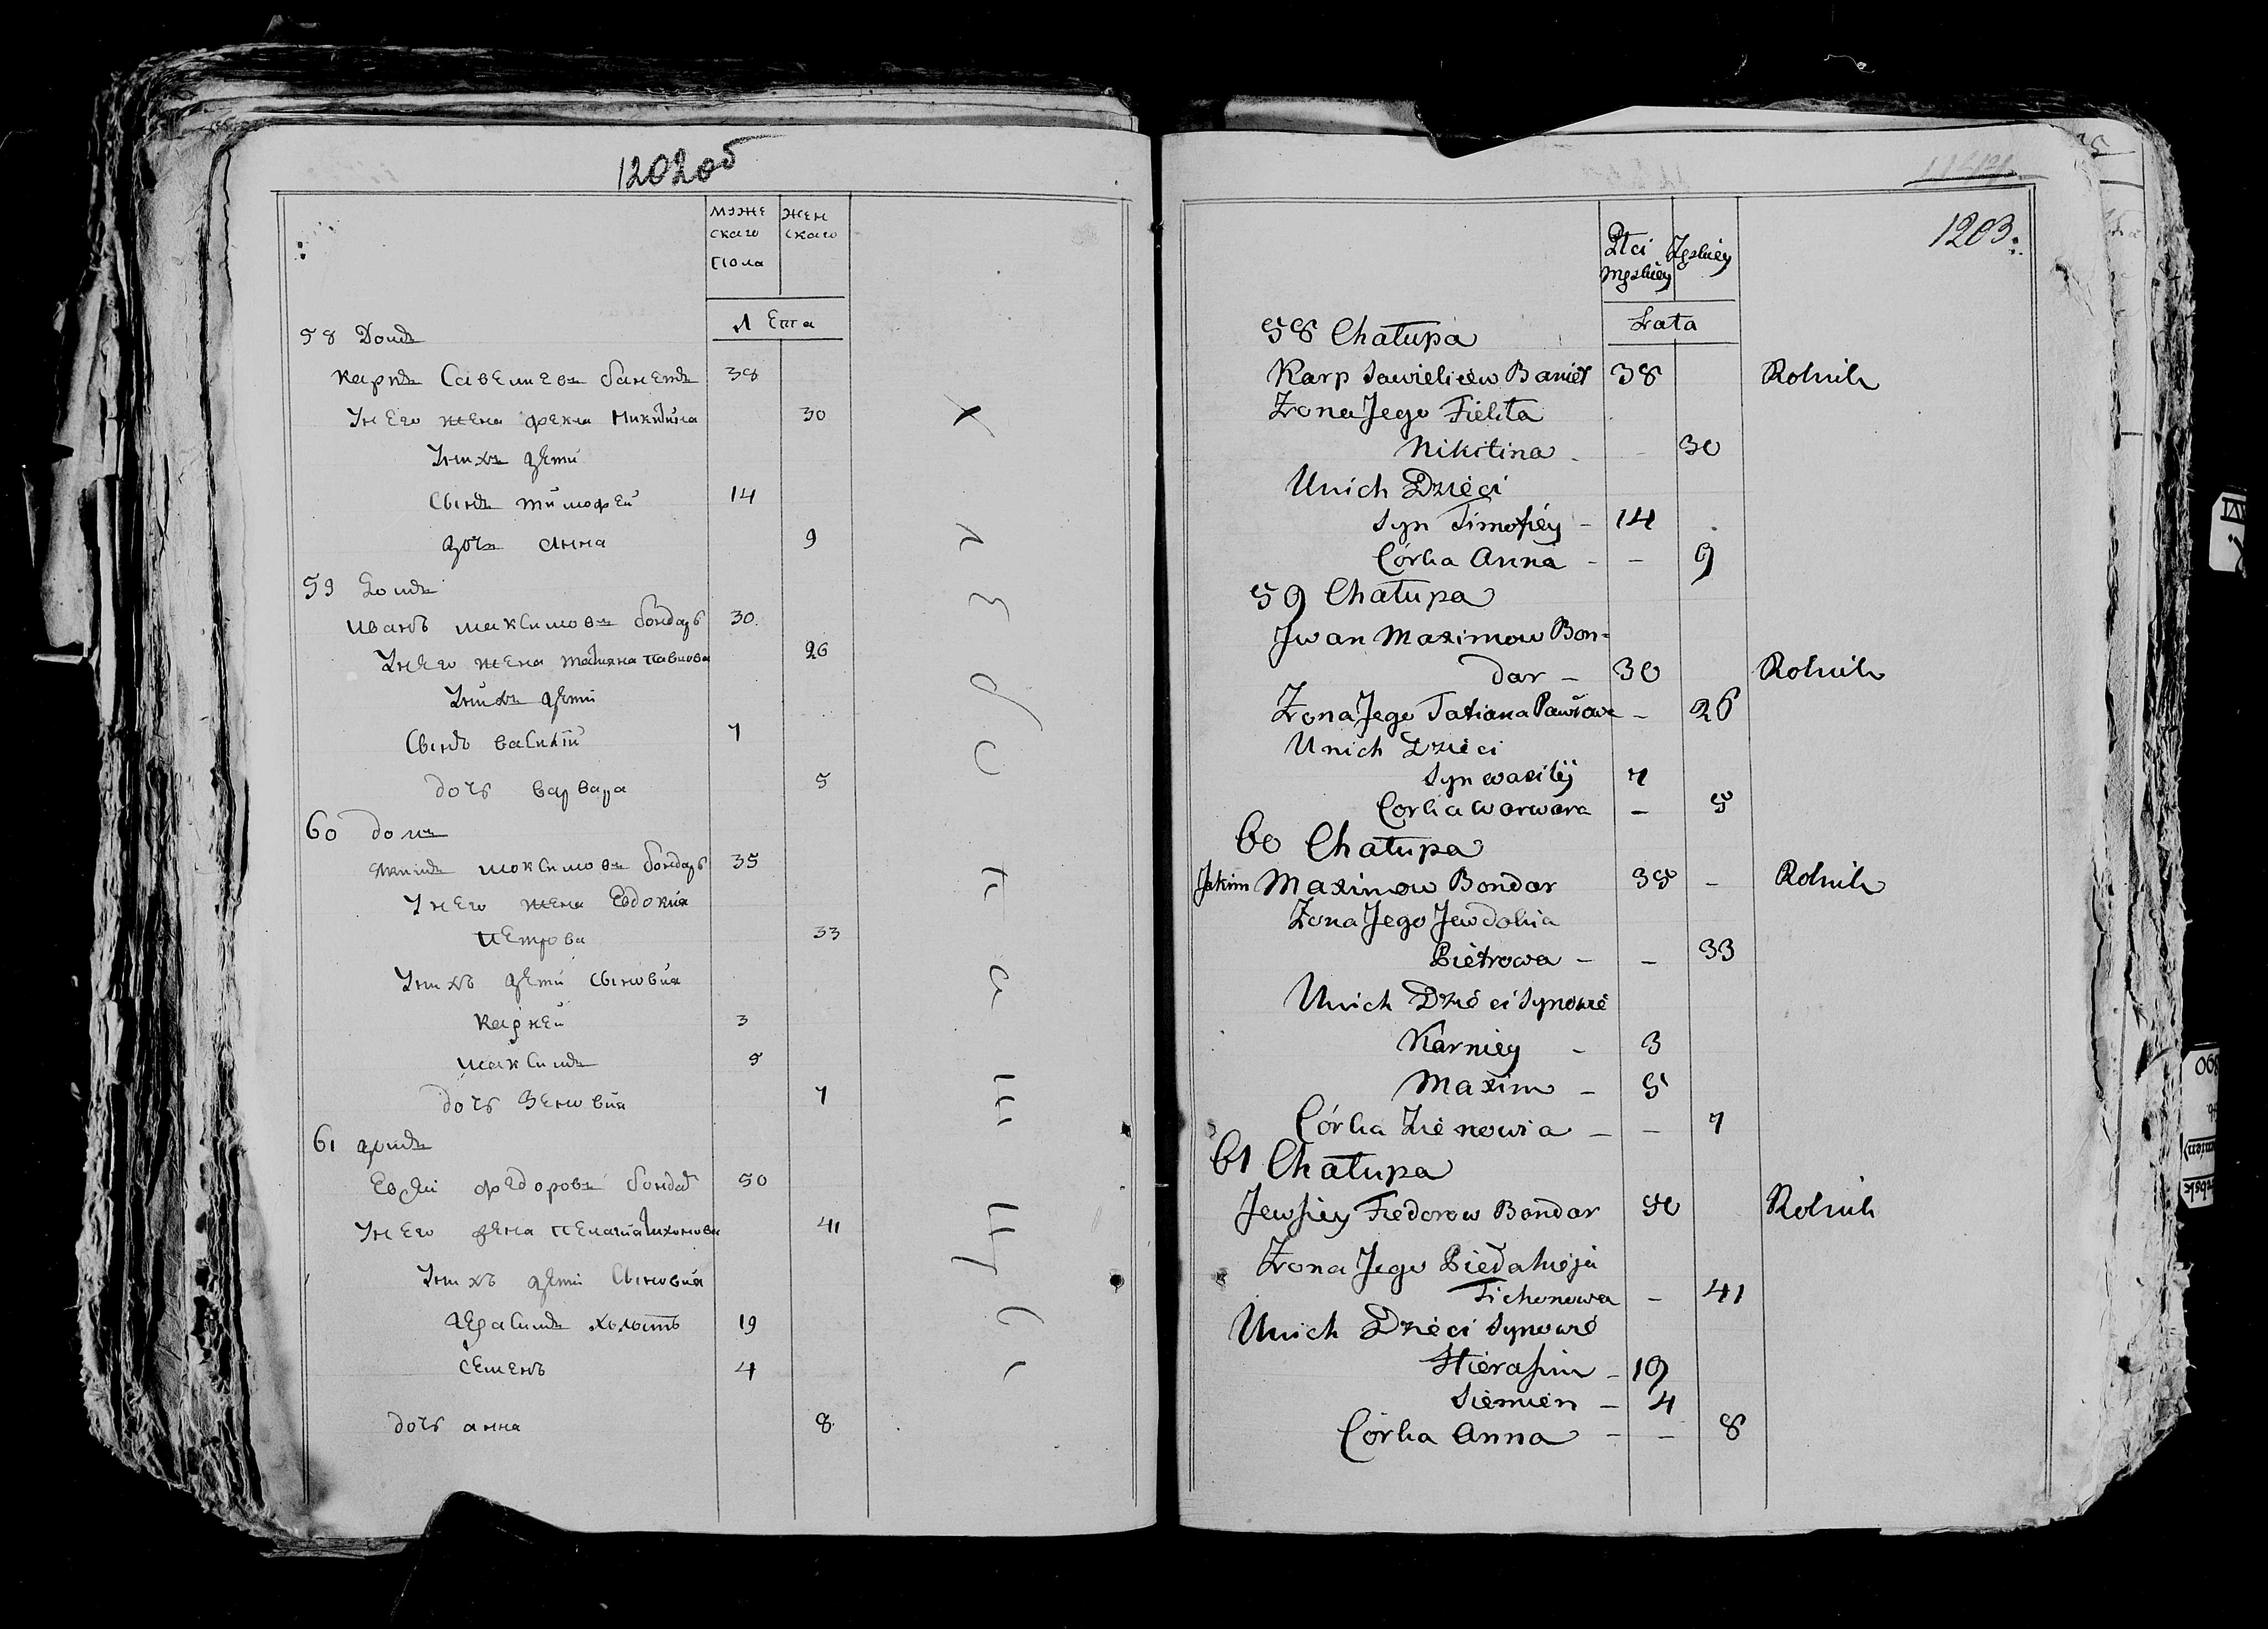 1202об
муже
скаго
пола
жен
скаго
Лета
58 Домъ
карпъ Савелиевъ банетъ 38
унего жена фекла Никитина 30
унихъ дети
Сынъ тимофей 14
дочъ анна 9
59 домъ
иванъ максимовъ бондарь 30.
унего жена татияна павлова 26
унихъ дети
Сынъ василий 7
дочь варвара 5
60 домъ
якимъ максимовъ бондарь 35
унего жена Евдокия
петрова 33
унихъ дети сыновия
карней 3
максимъ 5
дочь Зеновия 7
61 домъ
Евсей федоровъ бондарь 50
унего жена пелагия тихонова 41
унихъ дети Сыновия
герасимъ холостъ 19
семенъ 4
дочь анна 8
1203
Płci
męskiey
Żeskiey
Lata
58 Chałupa
Karp Sawieliew Baniet 38 Rolnik
Żona Jego Fiekła
Nikitina - - 30
Unich Dzieci
Syn Timofiey - 14
Córka Anna - - 9
59 Chałupa
Jwan Maximow Bon=
dar - 30 Rolnik
Żona Jego Tatiana Pawłowa - 26
Unich Dzieci
Syn wasilÿ 7
Corka warwara - 5
60 Chałupa
Jakim Maximow Bondar 35 - Rolnik
Żona Jego Jewdokia
Pietrowa - - 33
Unich Dzieci Synowie
Karniey - 3
Maxim - 5
Córka Zienowia - - 7
61 Chałupa
Jewsiey Fiedorow Bondar 50 Rolnik
Żona Jego Piełahieja
Tichonowa - 41
Unich Dzieci Synowie
Hierasim - 19
Siemien - 4
Córka Anna - - 8